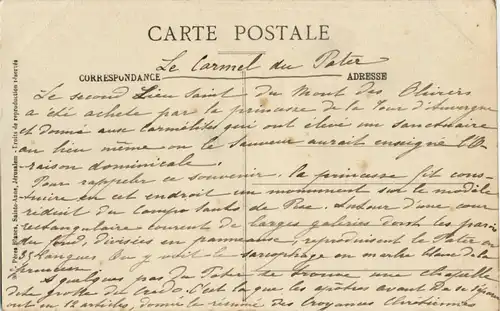 CARTE POSTALE
Le Carmel du Pater
CORRESPONDANCE
ADRESSE
Le second Lieu Saint du Mont des Oliviers
a été acheté par la princesse de la Tour d'Auvergne
et donné aux Carmélites qui ont élevé un sanctuaire
au lieu même où le Sauveur aurait enseigné l'O-
raison dominicale.
Pour rappeler ce souvenir, la princesse fit cons-
truire en cet endroit un monument sur le modèle
réduit du Campo Santo de Pise. Autour d'une cour
rectangulaire courent de larges galeries dont les parois
du fond, divisées en panneaux, reproduisent le Pater en
35 langues. On y voit le sarcophage en marbre blanc de la
princesse.
A quelques pas du Pater se trouve une chapelle
dite grotte du Credo. C'est là que les apôtres avant de se séparer
ont en 12 articles, donné le résumé des Croyances Chrétiennes
Pères Blancs, Sainte-Anne, Jérusalem - Droits de reproduction réservés